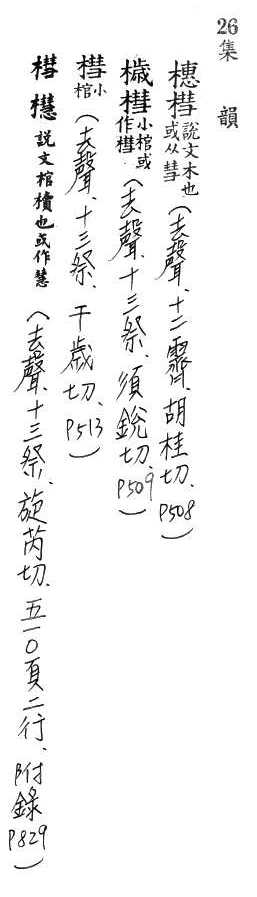 26
集韻
橞槥說文木也或从彗(去聲、十二霽、胡桂切、P508)
樴槥小棺或作槥(去聲、十三祭、須銳切、P509)
槥小棺(去聲、十三祭、于歲切、P513)
槥櫘說文棺櫝也或作慧(去聲、十三祭、旋芮切、五一〇頁二行、附錄P829)